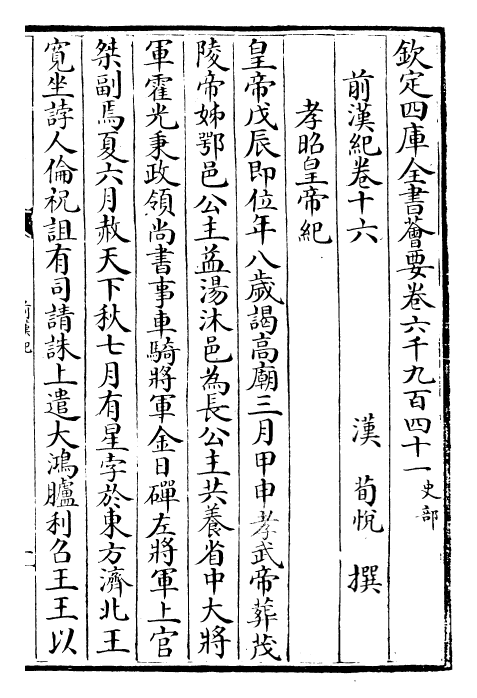 欽定四庫全書薈要卷六千九百四十一 史部
前漢紀卷十六
漢 荀悅 撰
孝昭皇帝紀
皇帝戊辰即位年八歲謁高廟三月甲申孝武帝葬茂
陵帝姊鄂邑公主益湯沐邑為長公主共養省中大將
軍霍光秉政領尚書事車騎將軍金日磾左將軍上官
桀副焉夏六月赦天下秋七月有星孛於東方濟北王
寛坐誖人倫祝詛有司請誅上遣大鴻臚利召王王以
前漢紀